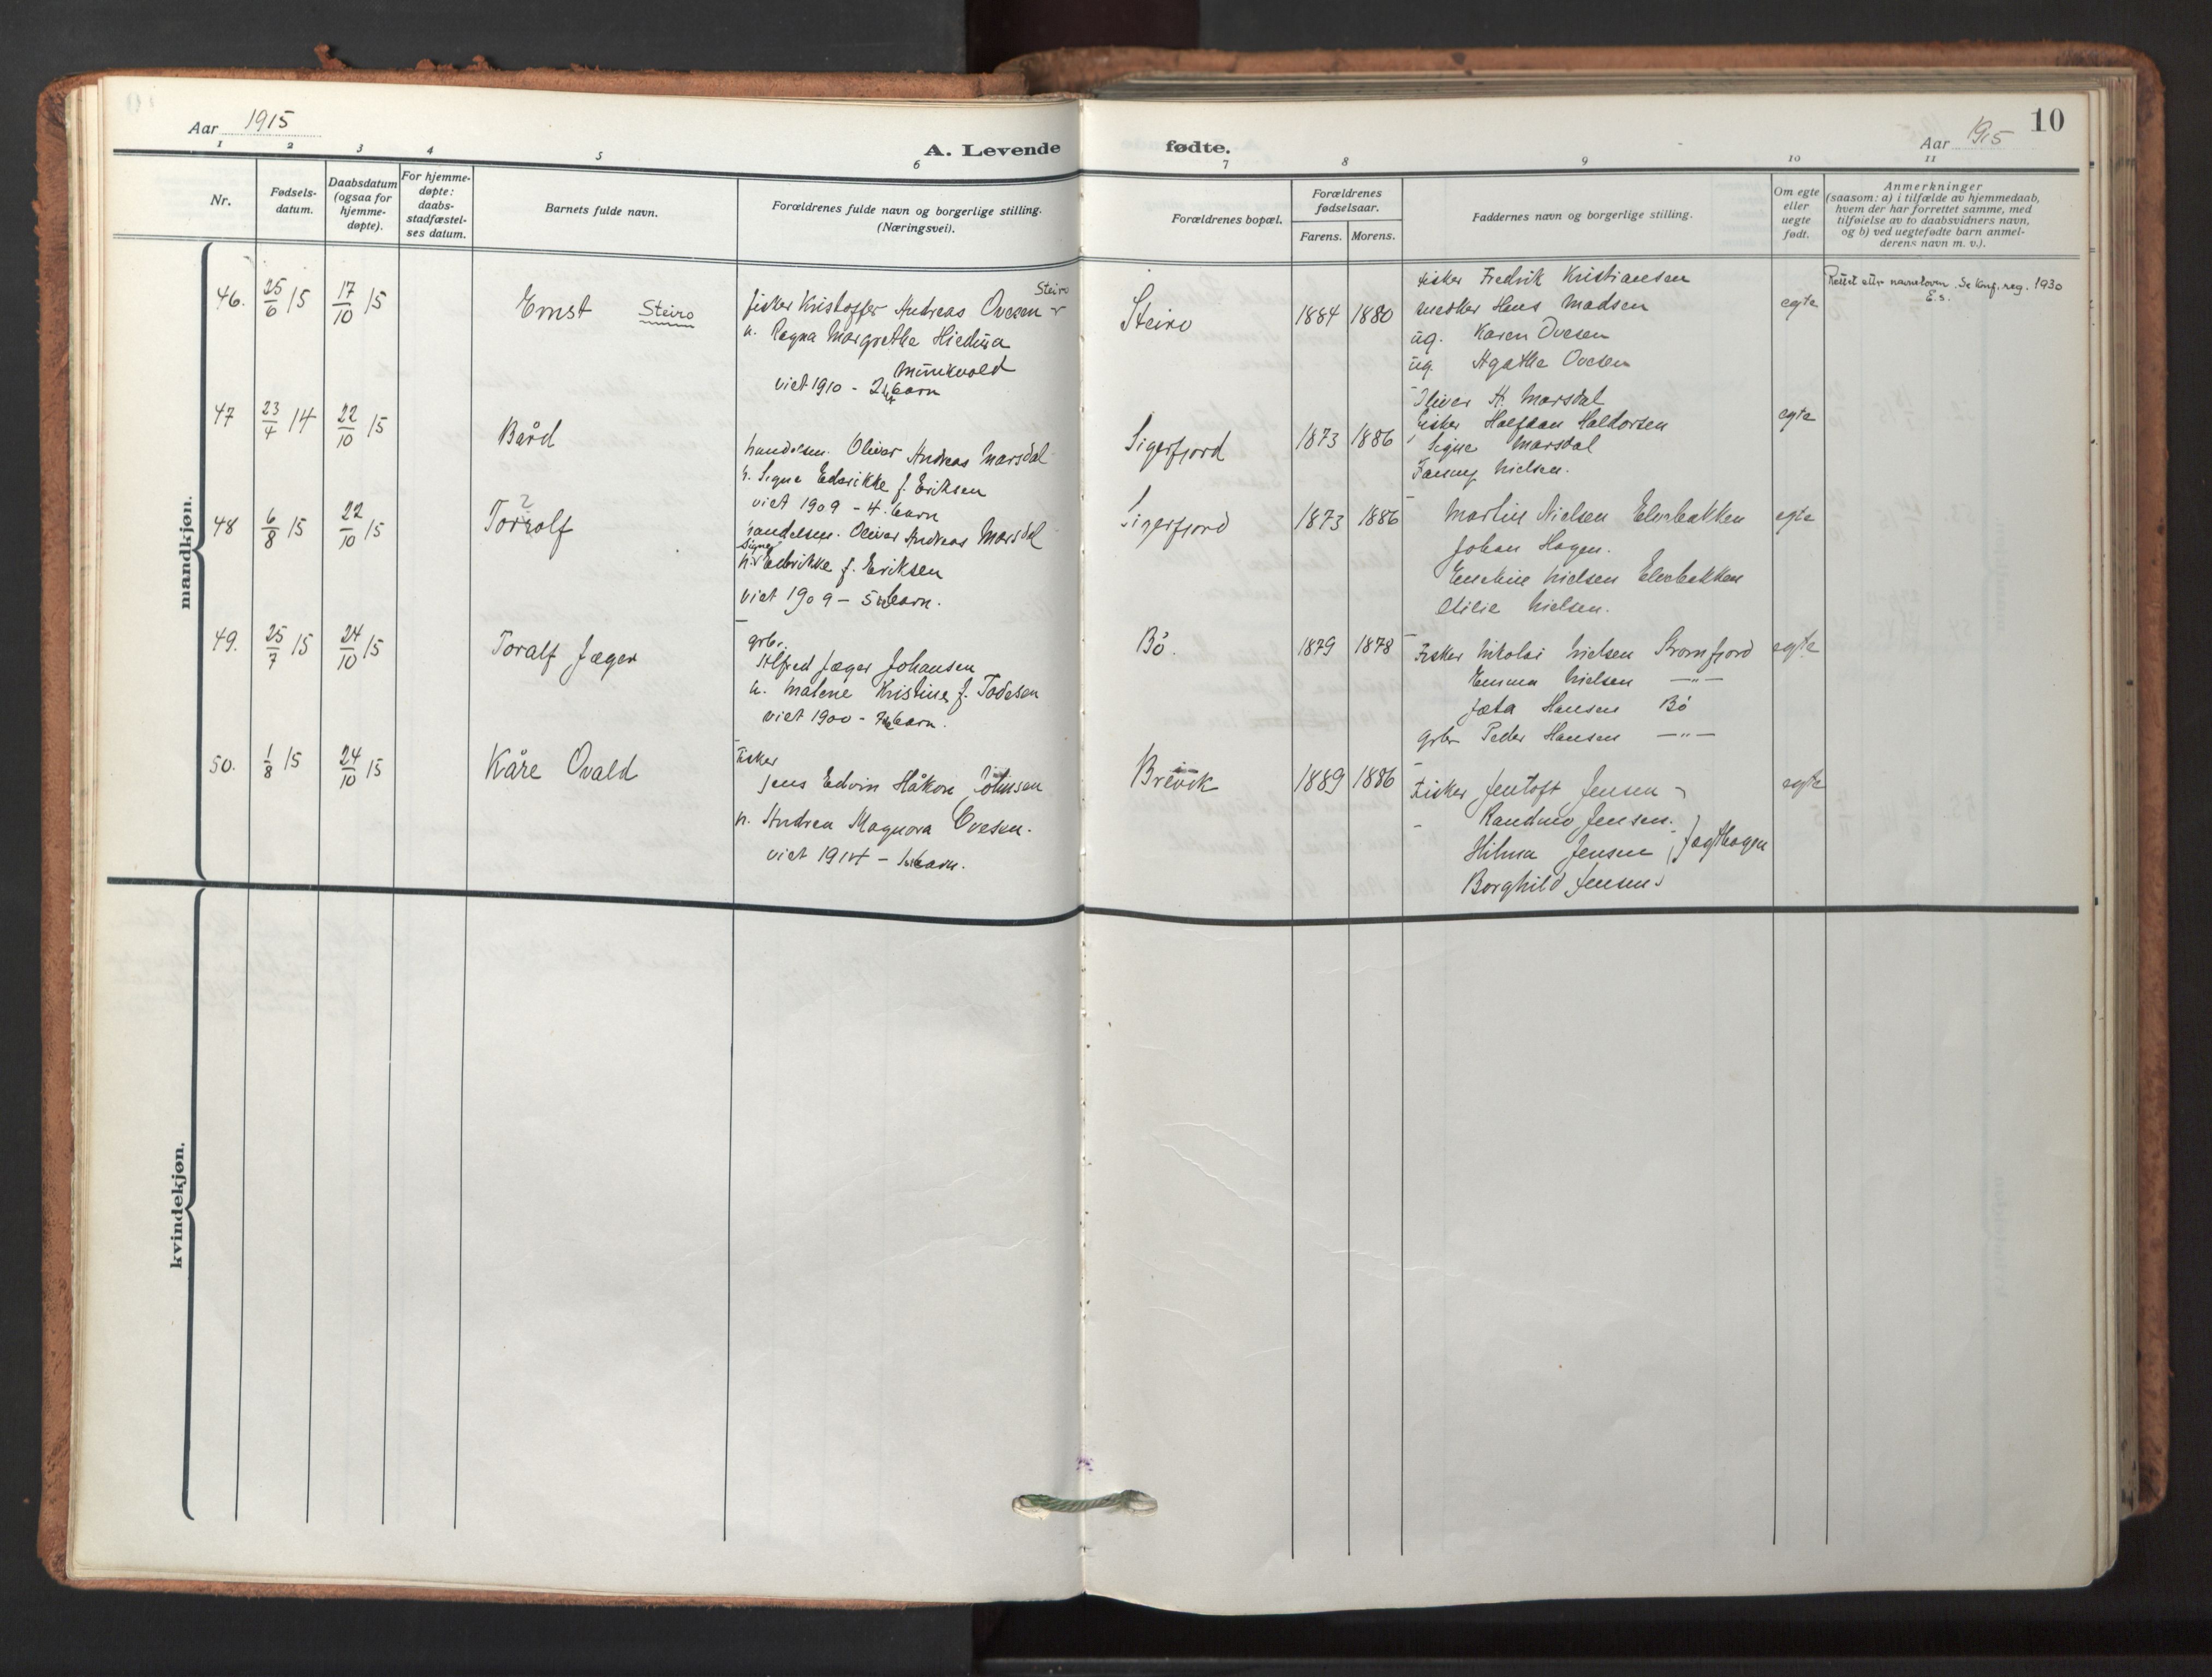 Aar 1915
A. Levende fødte.
Aar 1915
10
1 2 3 4 5 6 7 8 9 10 11
Nr.
Fødsels-
datum.
Daabsdatum
(ogsaa for
hjemme-
døpte).
For hjemme-
døpte:
daabs-
stadfæstel-
ses datum.
Barnets fulde navn.
Forældrenes fulde navn og borgerlige stilling.
(Næringsvei).
Forældrenes bopæl.
Forældrenes
fødselsaar.
Farens. Morens.
Faddernes navn og borgerlige stilling.
Om egte
eller
uegte
født.
Anmerkninger
(saasom: a) i tilfælde av hjemmedaab,
hvem der har forrettet samme, med
tilføielse av to daabsvidners navn,
og b) ved uegtefødte barn anmel-
derens navn m. v.).
mandkjøn.
46. 25/6 15 17/10 15 Ernst Steiro
Steiro
fisker Kristoffer Andreas Ovesen
u. Ragna Margrethe
viet 1910 - 2 barn
Steiro 1884 1880
Fisker Fredrik Kristiansen
Hans Madsen
ug. Karen Ovesen
ug. Agathe Ovesen
egte
Rettet efter navneloven. Se konf. reg. 1930
E.s.
47 23/4 14 22/10 15 Bård
handelsm. Oliver Andreas Marsdal
h. Signe Edvrikke f. Eriksen
viet 1909 - 4. barn
Sigerfjord 1873 1886
Oliver A. Marsdal
Fisker Halfdan Haldorsen
Signe Marsdal
Fanny Nielsen.
egte
48 6/8 15 22/10 15 Torrolf
handelsm. Oliver Andreas Marsdal
Signe
h. Edvrikke f. Eriksen
viet 1909 - 5 barn.
Sigerfjord 1873 1886
Martin Nielsen Elvebakken
Johan Hagen.
Nielsen Elvebakken
Nielsen.
egte
49. 25/7 15 24/10 15 Toralf Jæger
grbr.
Alfred Jæger Johansen
u. Malene Kristine f. Todesen
viet 1900 - 7 barn.
Bö. 1879 1878
Fisker Nikolai Nielsen
Emma Nielsen —"—
Jæta Hansen Bö
grbr Peder Hansen —"—
egte
50. 1/8 15 24/10 15 Kåre Ovald
Fisker
Jens Edvin Håkon Johnsen
h. Andrea Magnora Ovesen.
viet 1914 - 1 barn.
Breivik 1889 1886
Fisker Jentoft Jensen
Randmo Jensen.
Hilma Jensen
Borghild Jensen
egte
kvindekjøn.